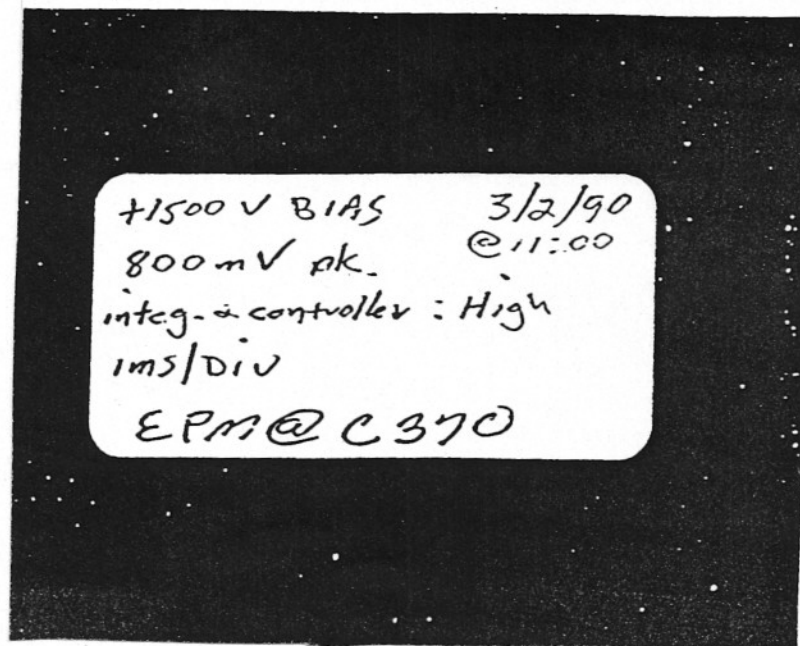 +1500 V BIAS 3/2/90
800 mV pk. @ 11:00
integ- controller : High
1ms/Div
EPM @ C370